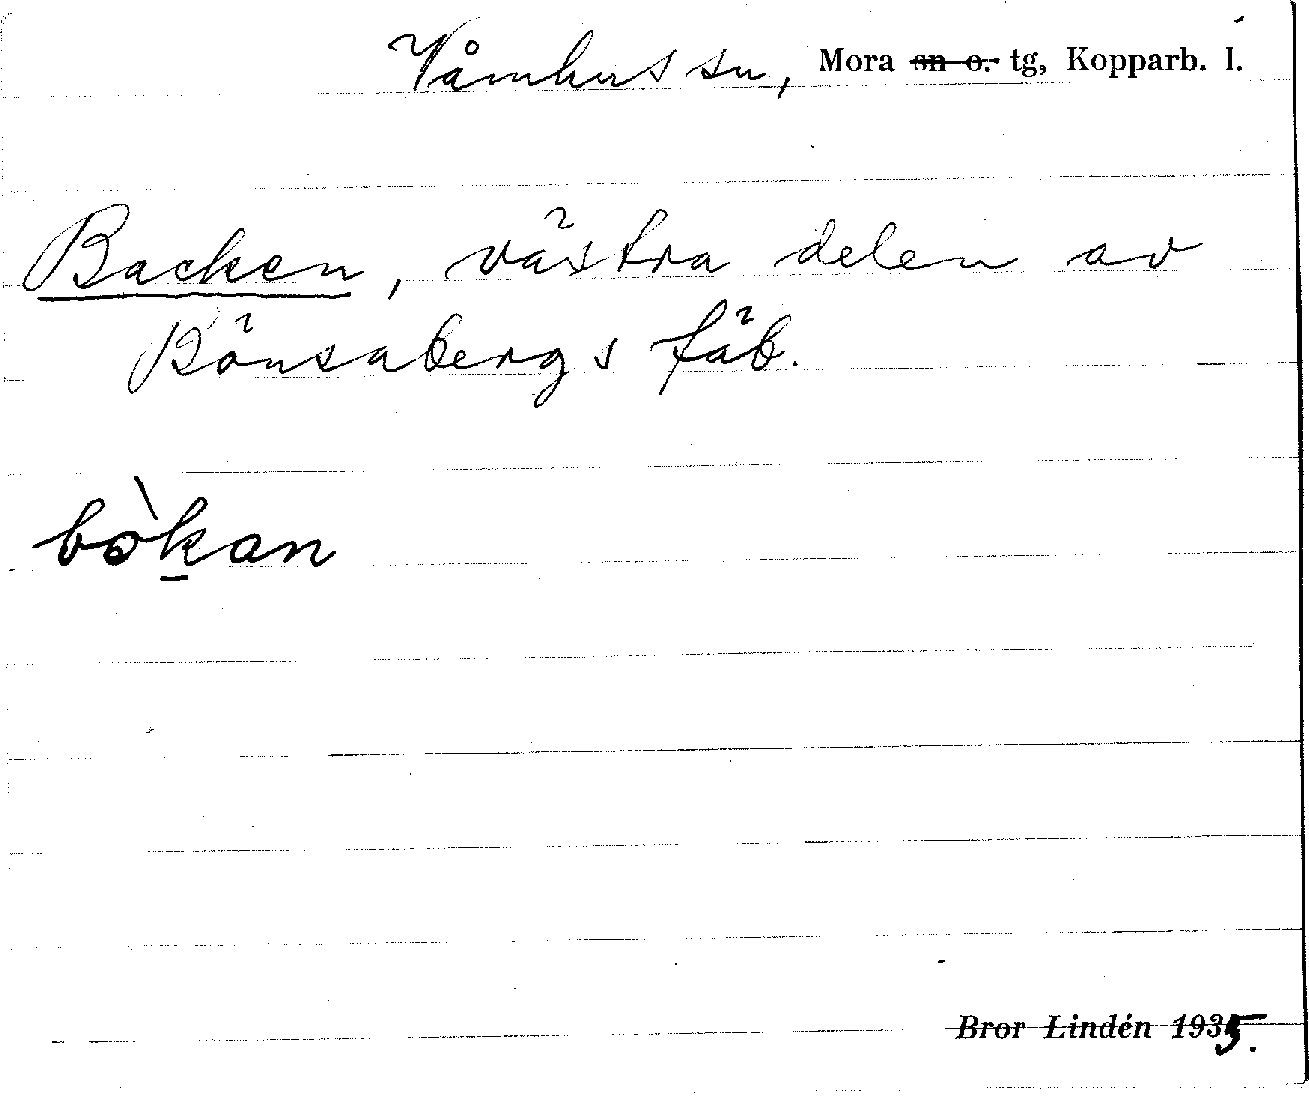 Våmhus sn, Mora sn o. tg, Kopparb. l.
Backen, västra delen av
Bönsabergs fäb.
bòkan
Bror Lindén 1935.